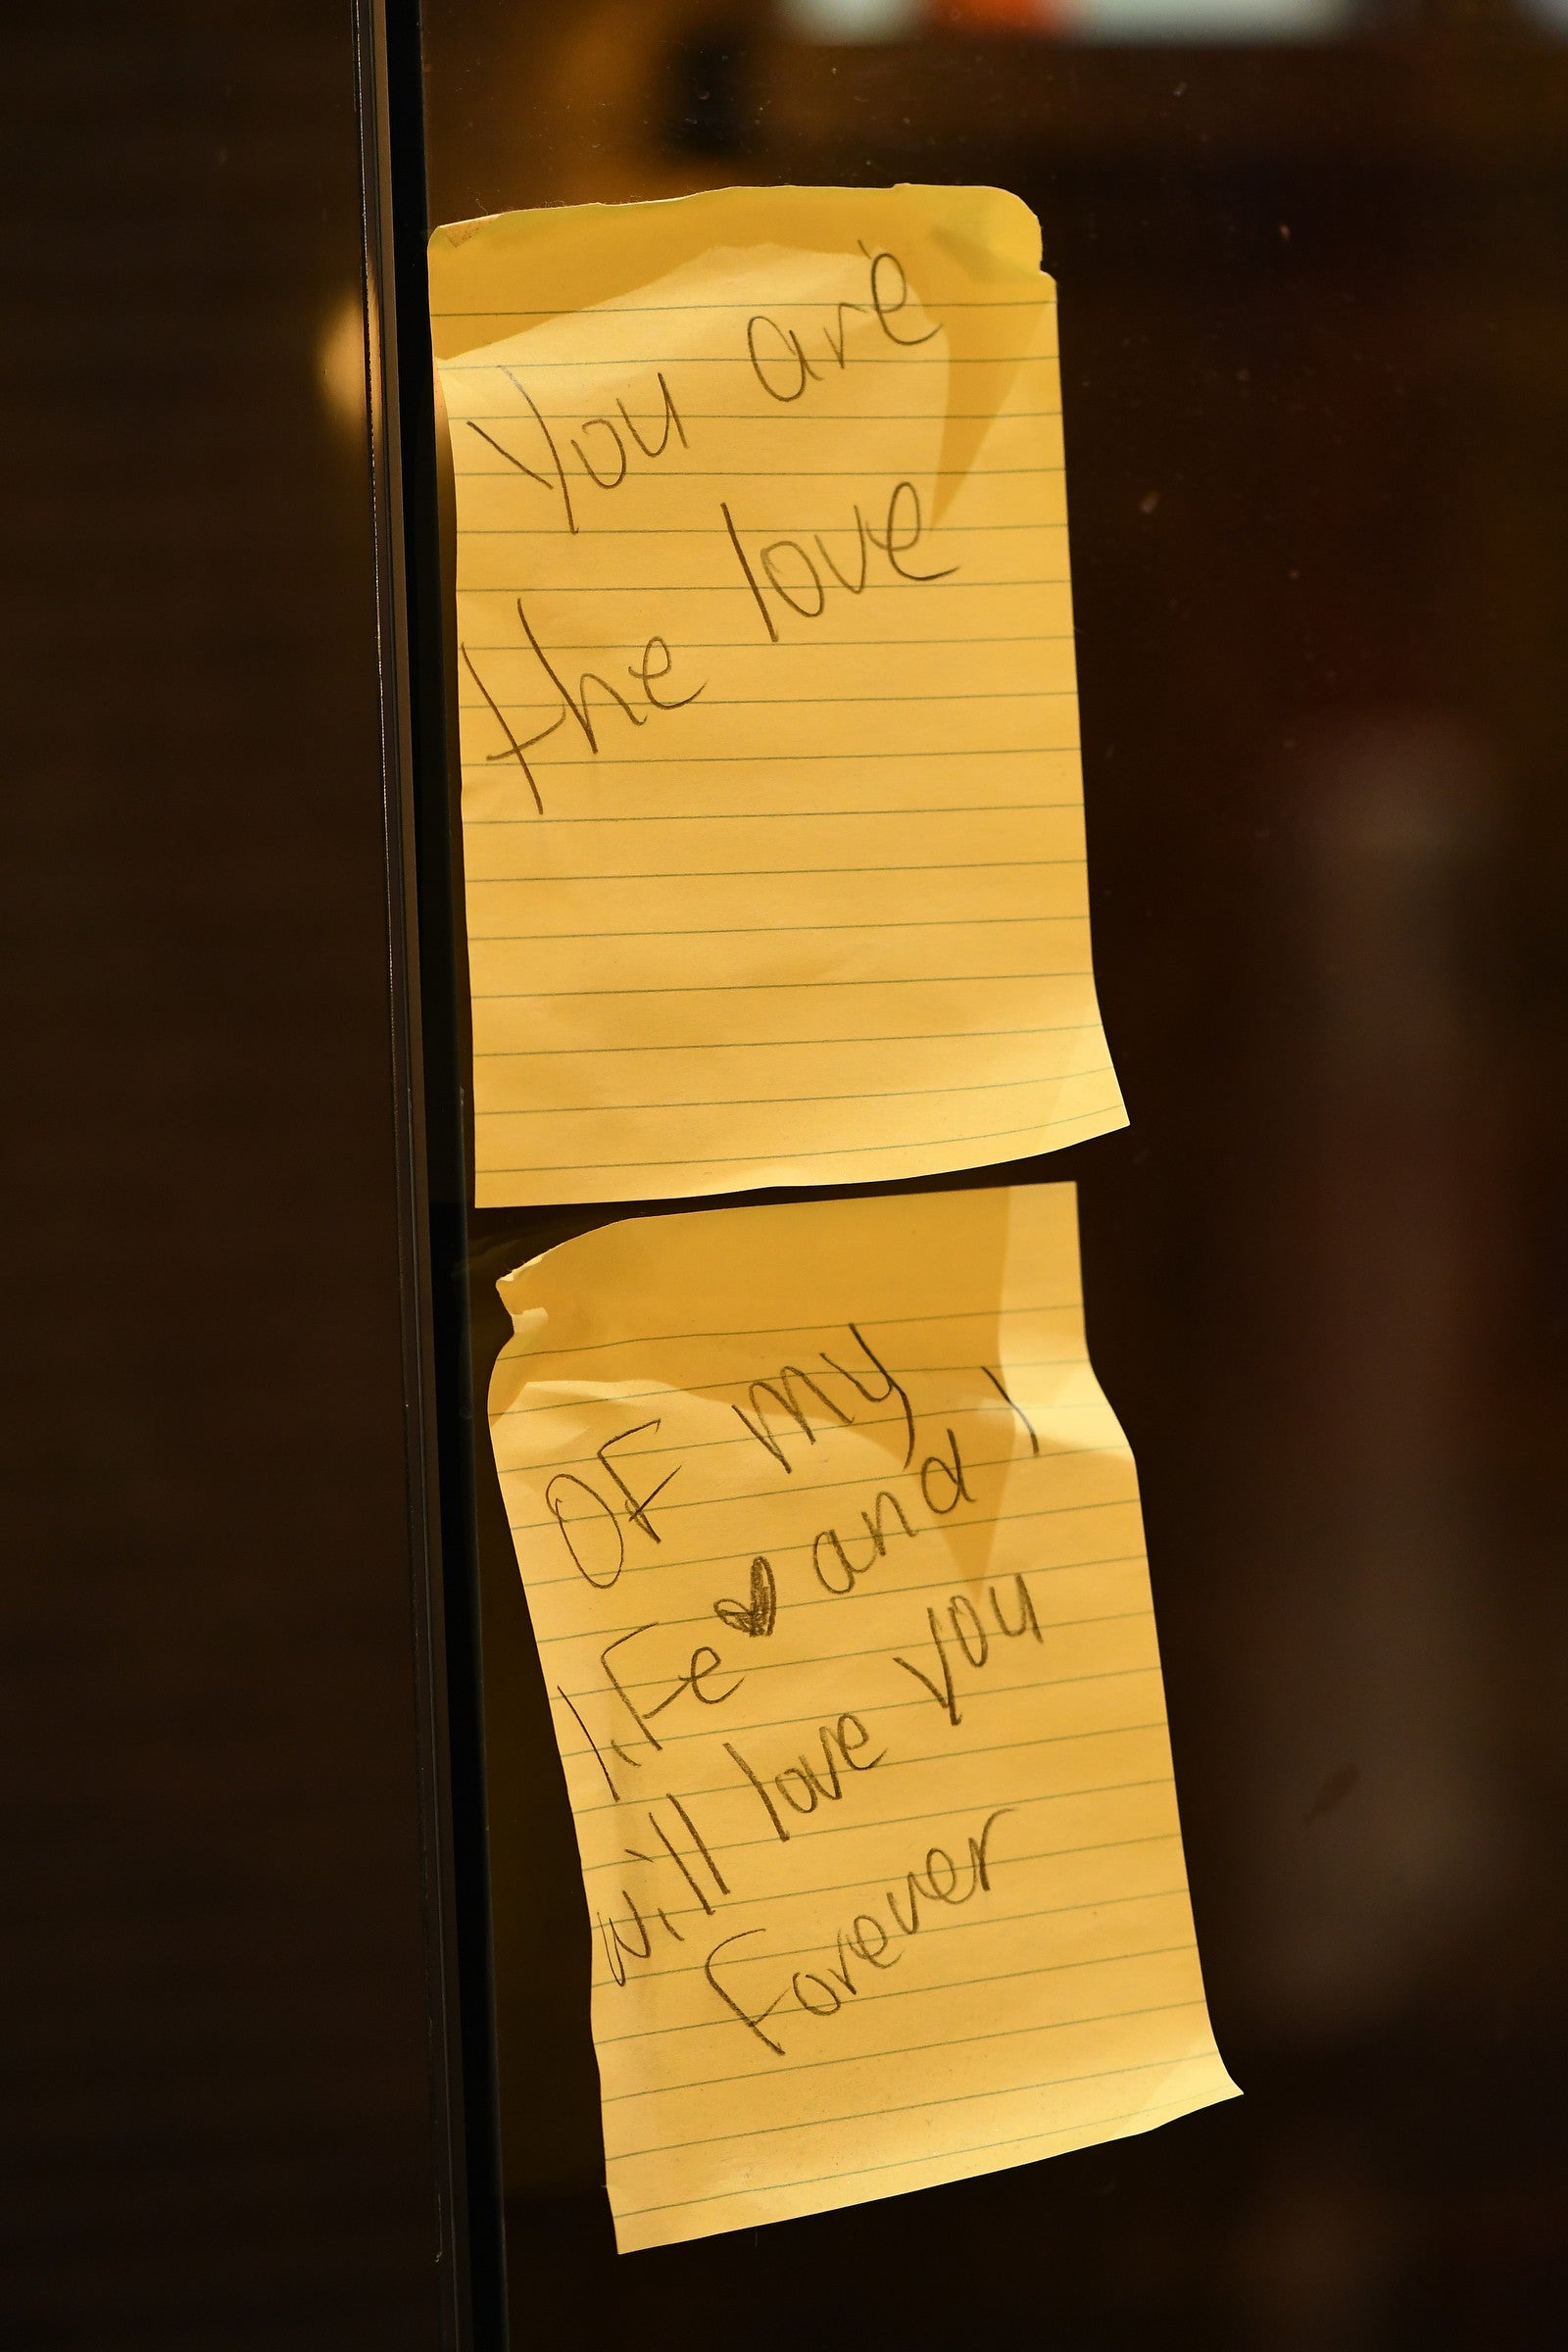 You are
the love
OF my
liFe ♥ and I
will love you
Forever